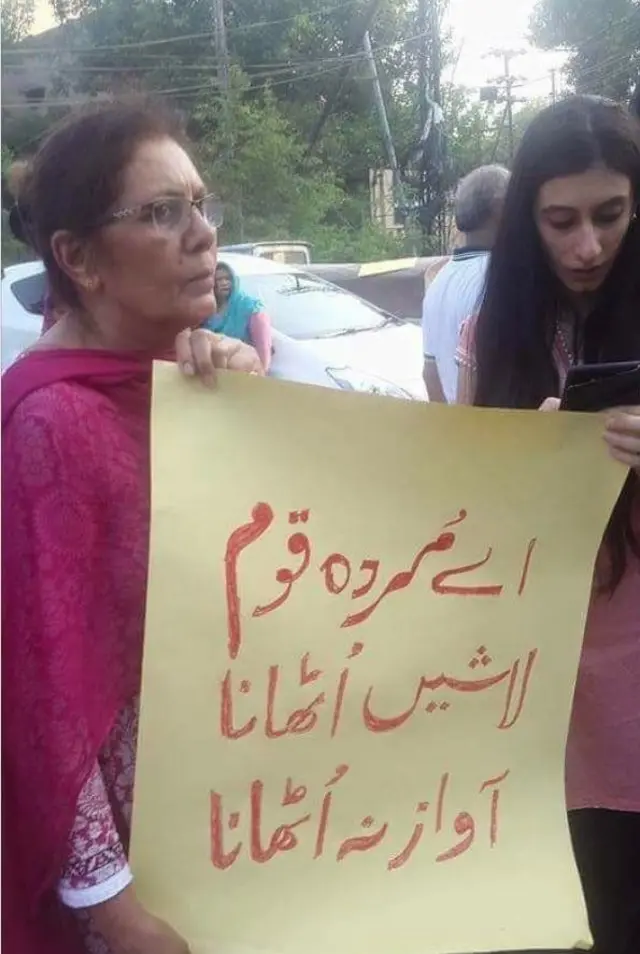 اے مُردہ قوم
لاشیں اُٹھانا
آواز نہ اُٹھانا